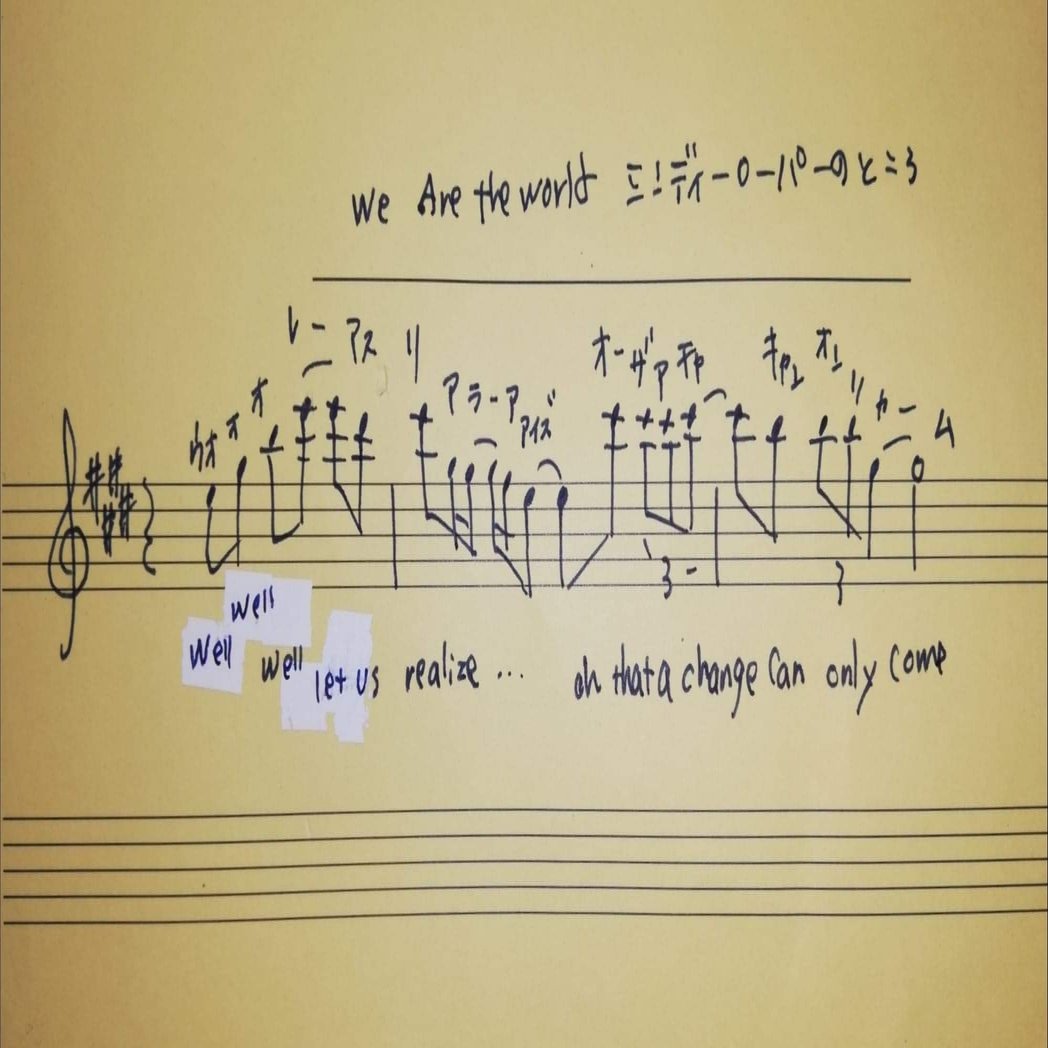 We Are the world シンディーローパーのところ
レー アス リ オー ザ ア チャ キャン オン
ウオ オ オ ア ラー ア アイズ リ カー ム
well
well well let us realize ... oh that a change can only come
3 3